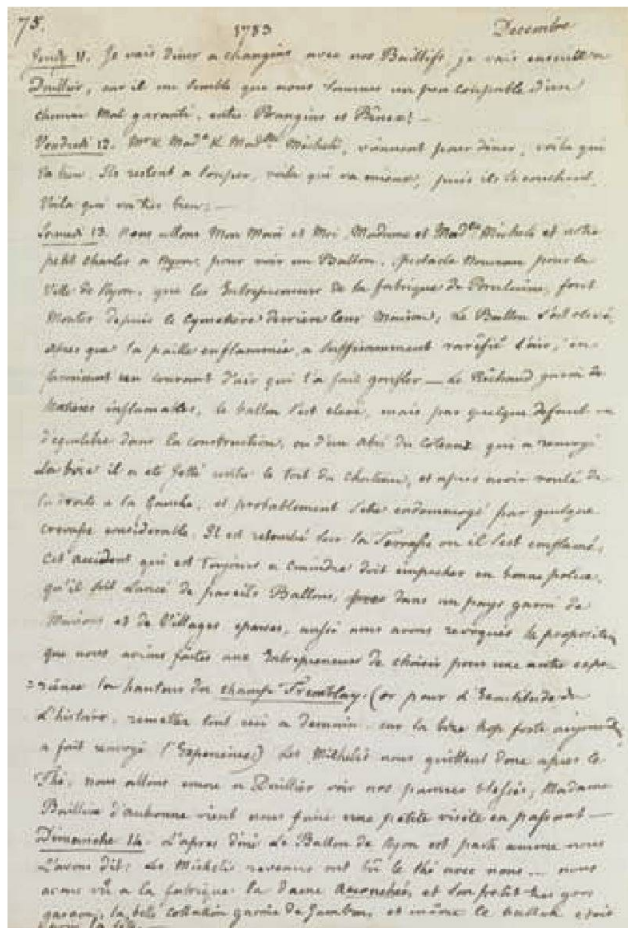 75. 1783 Decembre
Jeudy 11. Je vais diner a changins avec nos Baillifs, je vais ensuitte a
Duillier, car il me semble que nous sommes un peu coupable d'un
chemin mal garanti, entre Prangins et Bènex! —
Vendredi 12. Mr & Made & Madlle Micheli, viennent pour diner, voila qui
va bien. Ils restent a souper, voila qui va mieux, puis ils se couchent,
Voila qui va tres bien. —
Samedi 13. Nous allons Mon Mari et Moi, Madame et Madlle Micheli et notre
petit Charles a Nyon, pour voir un Ballon, spectacle nouveau pour la
Ville de Nyon, que les Entrepreneurs de la fabrique de Porcelaine, font
Monter depuis le Cymetiere derriere leur Maison, Le Ballon s'est elevé,
apres que la paille enflammée, a suffisamment rarefié l'air, en
fournissant un courant d'air qui l'a fait gonfler — Le Réchaud garni de
Matieres inflamables, le ballon s'est elevé, mais par quelque defaut
d'equilibre dans la construction, ou d'un abri du coteaux qui a renvoyé
la bise il a eté jetté contre le toit du chateau, et apres avoir roulé de
la droite a la Gauche, et probablement s'etre endommagé par quelque
crevasse considerable. Il est retombé sur la Terrasse ou il s'est enflamé,
Cet accident qui est toujours a craindre doit empecher en bonne police,
qu'il soit Lancé de pareils Ballons, dans un pays garni de
Maisons et de Villages eparses, aussi nous avons revoqués la proposition
que nous avions faites aux Entrepreneurs de choisir pour une autre expe-
=rience les hauteurs du champs Tremblay. (or pour l'Exactitude de
L'histoire, remettez tout ceci a demain, car la bize trop forte aujourd'hui
a fait renvoyé l'Experience) Les Michelis nous quittent donc apres le
Thé, nous allons encore a Duillier voir nos pauvres blessés, Madame
Baillive d'aubonne vient nous faire une petite visite en passant —
Dimanche 14. L'apres diné Le Ballon de Nyon est parti comme nous
L'avons dit: Les Michelis revenus ont bû le thé avec nous — nous
avons vû a la fabrique la dame accouchée, et son petit gros
garçon, la belle collation garnie de Jambons, et même le ballon etoit